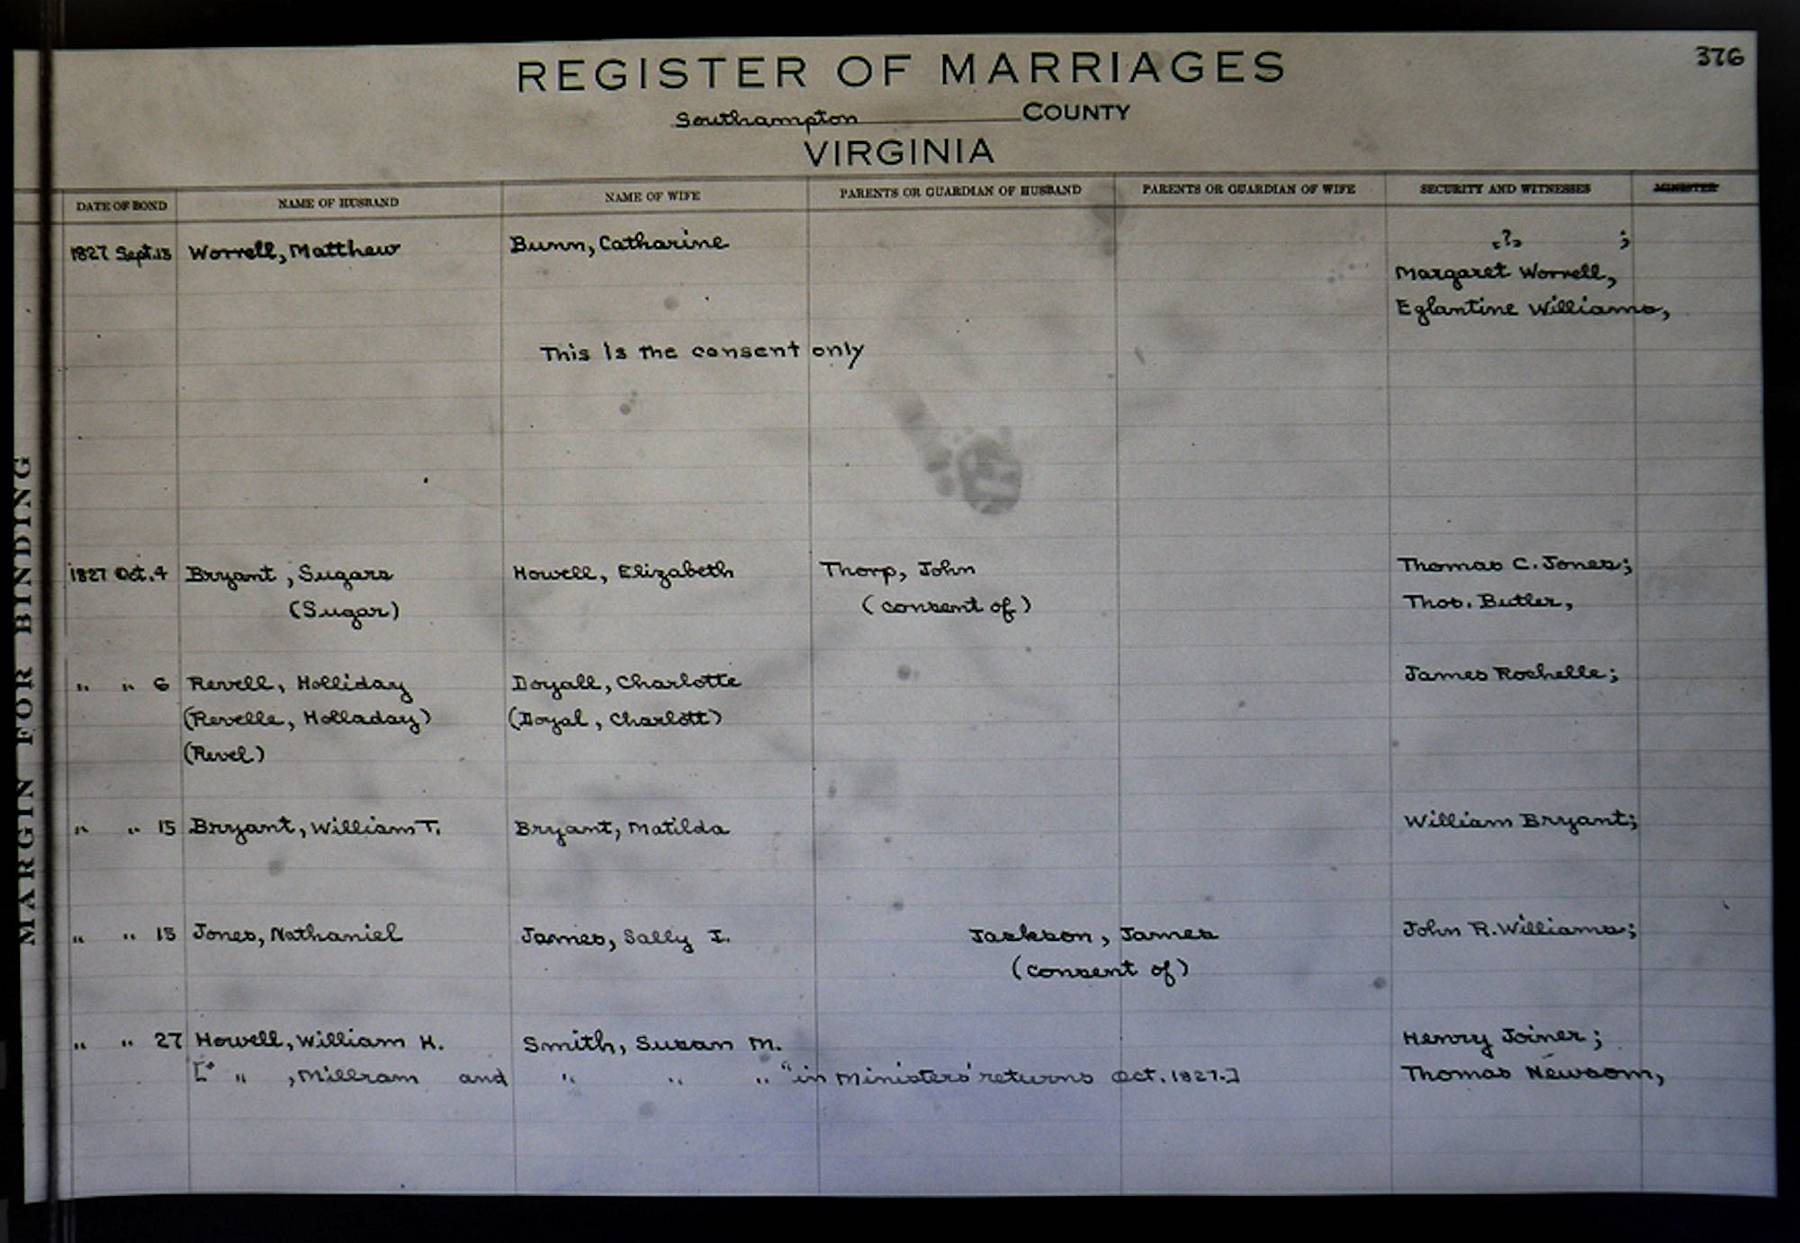 376
REGISTER OF MARRIAGES
Southampton COUNTY
VIRGINIA
DATE OF BOND NAME OF HUSBAND NAME OF WIFE PARENTS OR GUARDIAN OF HUSBAND PARENTS OR GUARDIAN OF WIFE SECURITY AND WITNESSES MINISTER
1827 Sept. 13 Worrell, Matthew Bunn, Catharine ? ;
Margaret Worrell,
Eglantine Williams,
This is the consent only
1827 Oct. 4 Bryant, Sugars Howell, Elizabeth Thorp, John Thomas C. Jones;
(Sugar) (consent of) Thos. Butler,
" " 6 Revell, Holliday Doyall, Charlotte James Rochelle;
(Revelle, Holladay) (Doyal, Charlott)
(Revel)
" " 15 Bryant, William T. Bryant, Matilda William Bryant;
" " 15 Jones, Nathaniel James, Sally I. Jackson, James John R. Williams;
(consent of)
" " 27 Howell, William H. Smith, Susan M. Henry Joiner;
[" " , Millram and " " " " in Ministers' returns Oct. 1827.] Thomas Newsom,
MARGIN FOR BINDING